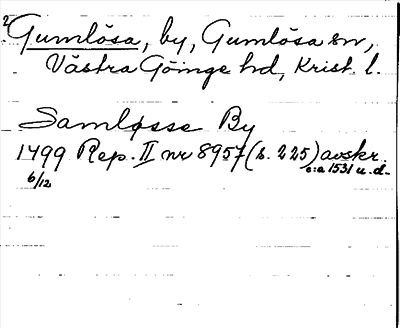 2 Gumlösa, by, Gumlösa sn,
Västra Göinge hd, Krist. l.
Samløsse By
1499 Rep. II nr 8957 (s. 225) avskr.
6/12 c:a 1531 u.d.